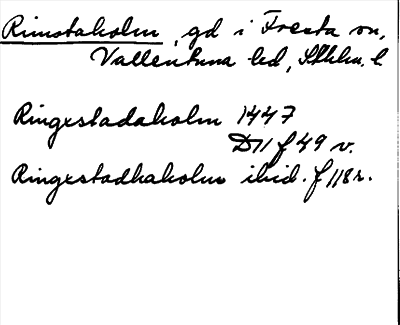 Rimstaholm, gd i Fresta sn,
Vallentuna hd, Sthlm. l.
Ringestadaholm 1447
D11 f 49 v.
Ringestadhaholm ibid. f 118 r.